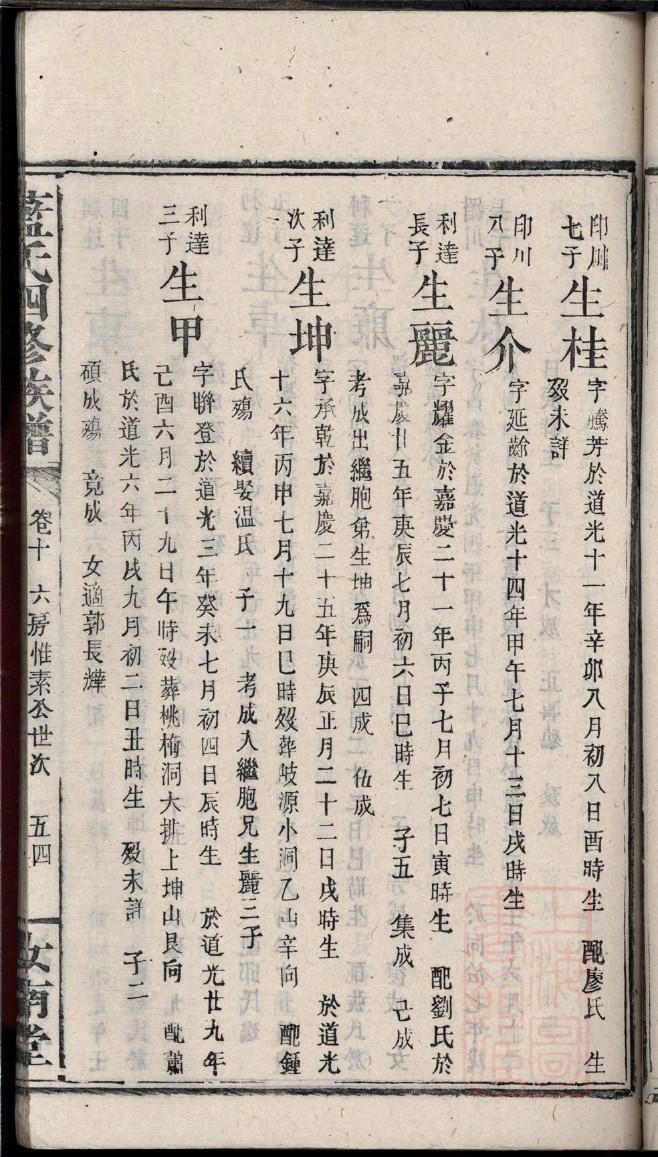 印川
七子
生桂
字騰芳於道光十一年辛卯八月初八日酉時生 配廖氏 生
歿未詳
印川
八子
生介
字延齡於道光十四年甲午七月十三日戌時生
利達
長子
生麗
字耀金於嘉慶二十一年丙子七月初七日寅時生 配劉氏於
嘉慶廿五年庚辰七月初六日巳時生 子五 集成 已成
考成出繼胞弟生坤爲嗣 四成 伍成
利達
次子
生坤
字承乾於嘉慶二十五年庚辰正月二十二日戌時生 於道光
十六年丙申七月十九日巳時歿葬岐源小洞乙山辛向 配鍾
氏殤 續娶温氏 子一 考成入繼胞兄生麗三子
利達
三子
生甲
字聯登於道光三年癸未七月初四日辰時生 於道光廿九年
己酉六月二十九日午時歿葬桃梅洞大排上坤山艮向 配蕭
氏於道光六年丙戌九月初二日丑時生 歿未詳 子二
碩成殤 竟成 女適郭長燁
藍氏四修族譜
卷十 六房惟素公世次 五四
汝南堂